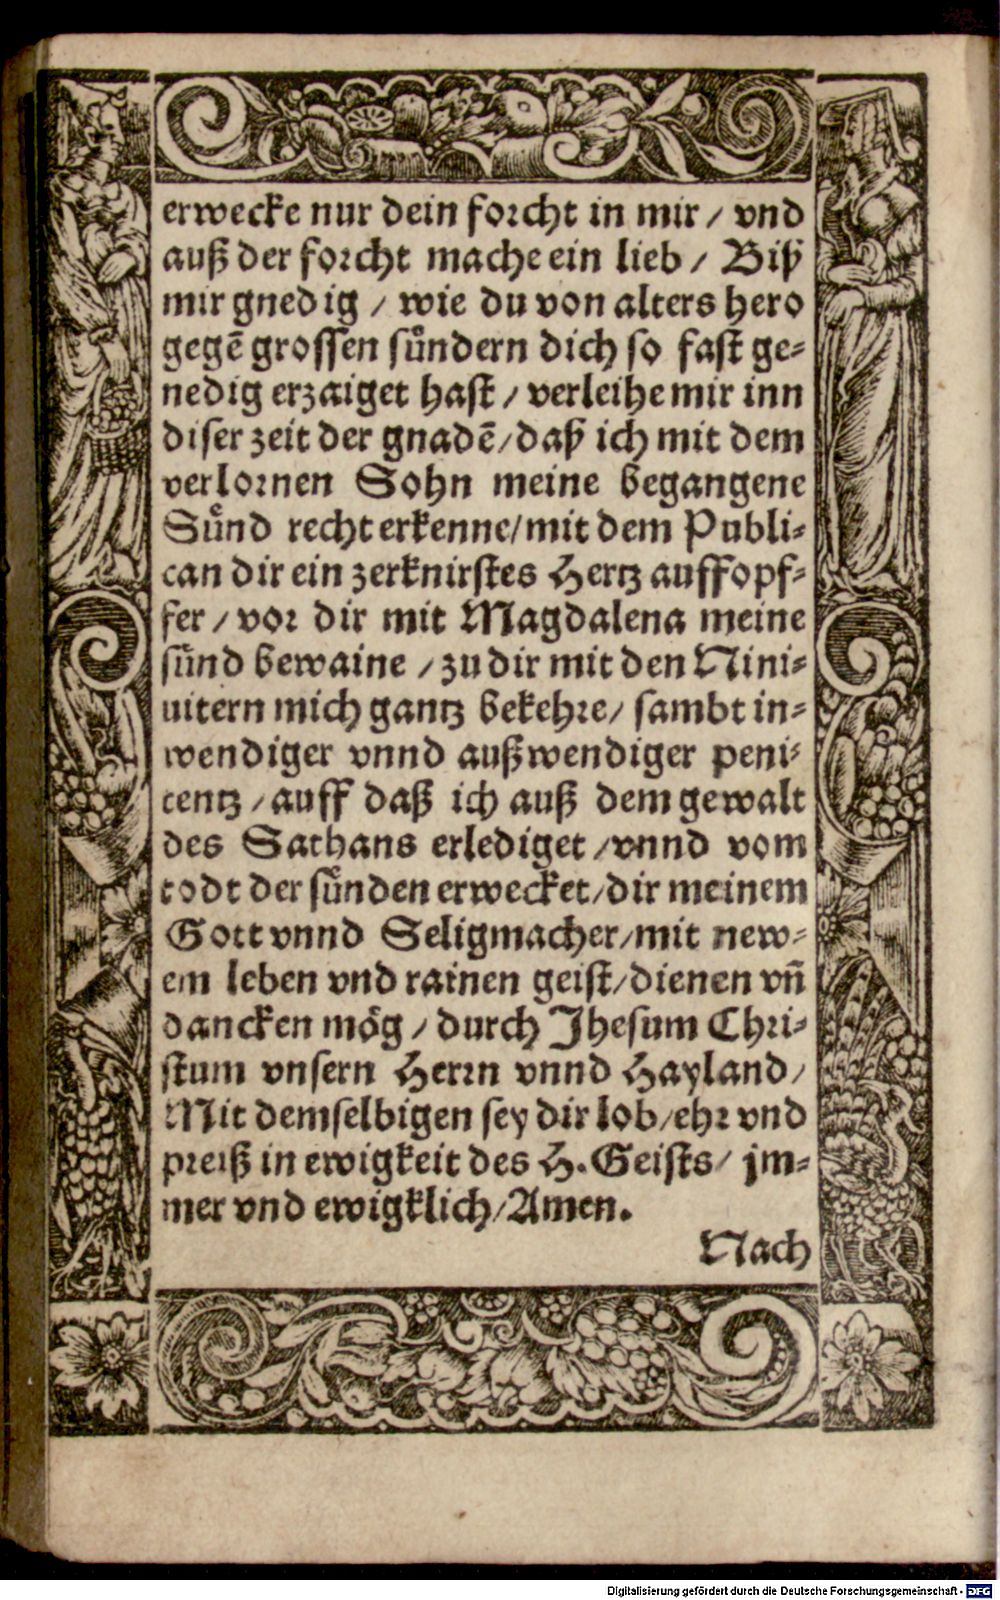 erwecke nur dein forcht in mir / vnd
auß der forcht mache ein lieb / Biß
mir gnedig / wie du von alters hero
gegē grossen sůndern dich so fast ge-
nedig erzaiget hast / verleihe mir inn
diser zeit der gnadē / daß ich mit dem
verlornen Sohn meine begangene
Sůnd recht erkenne / mit dem Publi-
can dir ein zerknirstes Hertz auffopf-
fer / vor dir mit Magdalena meine
sůnd bewaine / zu dir mit den Nini-
uitern mich gantz bekehre / sambt in-
wendiger vnnd außwendiger peni-
tentz / auff daß ich auß dem gewalt
des Sathans erlediget / vnnd vom
todt der sünden erwecket / dir meinem
Gott vnnd Seligmacher / mit new-
em leben vnd rainen geist / dienen vn̄
dancken mög / durch Jhesum Chri-
stum vnsern Herrn vnnd Hayland /
Mit demselbigen sey dir lob / ehr vnd
preiß in ewigkeit des H. Geists / jm-
mer vnd ewigklich / Amen.
Nach
Digitalisierung gefördert durch die Deutsche Forschungsgemeinschaft - DFG